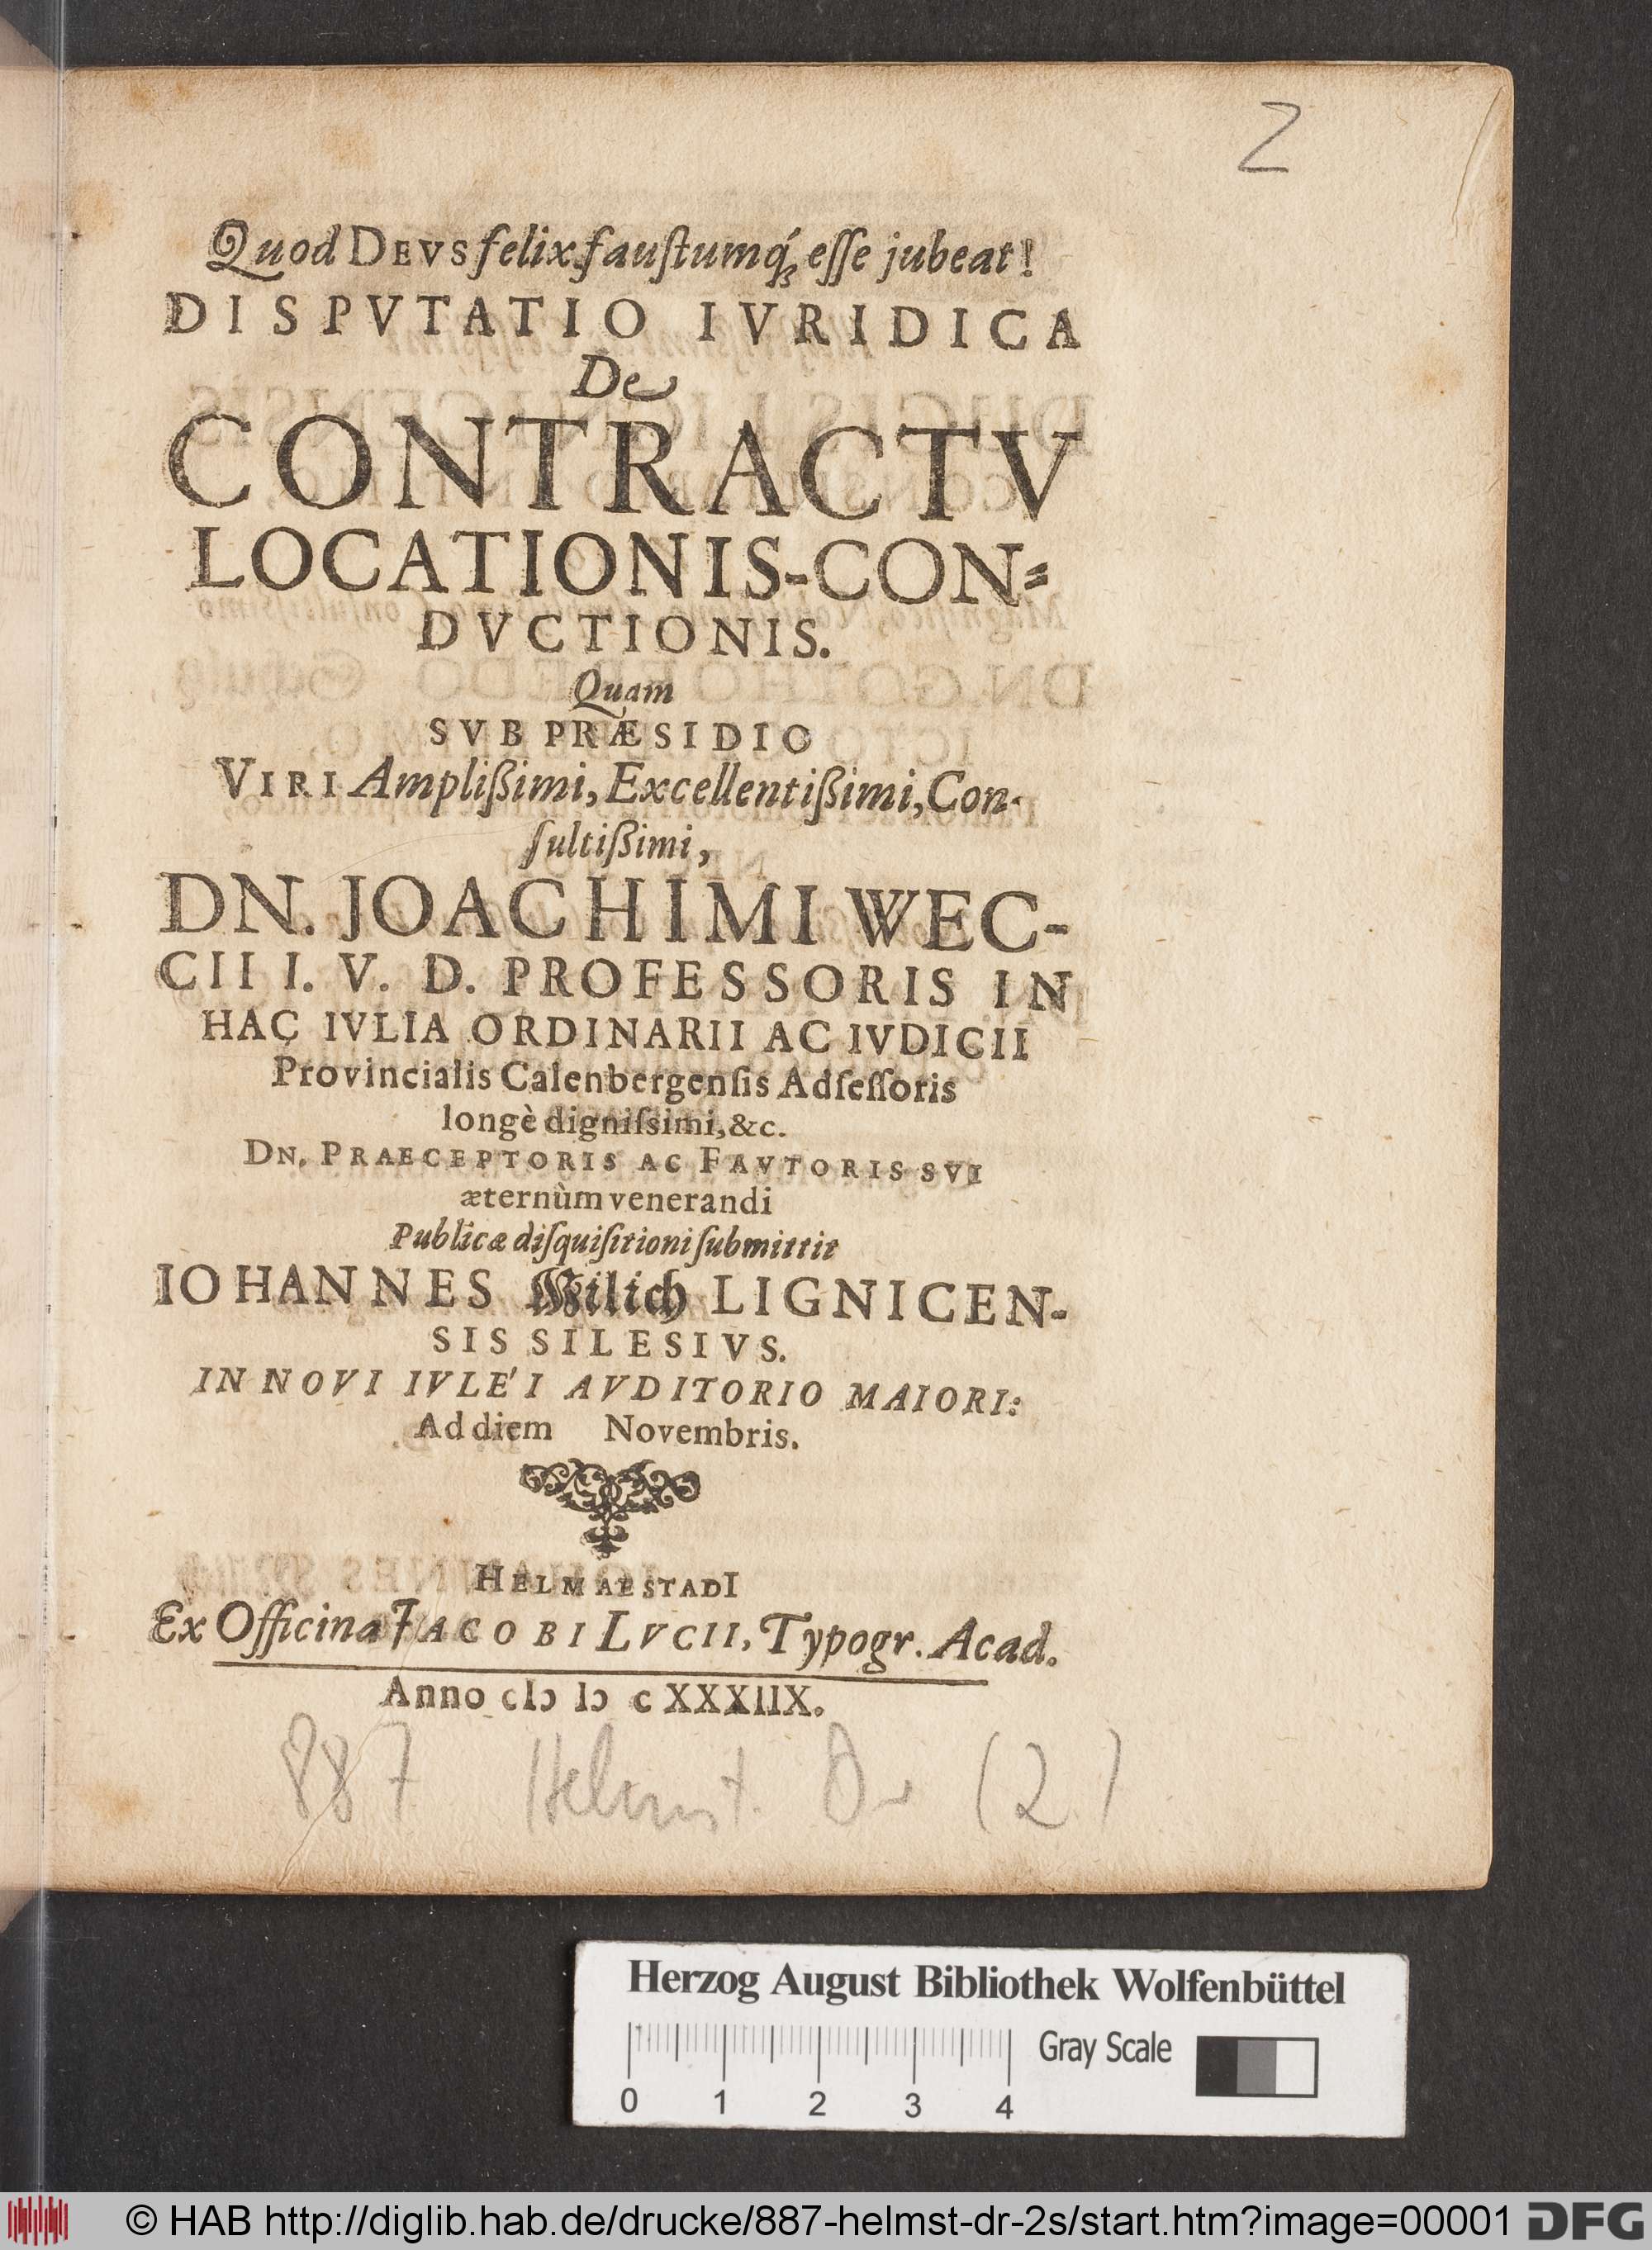 2
Quod DEVS felix faustumq́ꝫ esse jubeat!
DISPVTATIO IVRIDICA
De
CONTRACTV
LOCATIONIS-CON⸗
DVCTIONIS.
Quam
SVB PRÆSIDIO
VIRI Ampliſsimi, Excellentiſsimi, Con-
ſultiſsimi,
DN. JOACHIMI WEC-
CII I. V. D. PROFESSORIS IN
HAC IVLIA ORDINARII AC IVDICII
Provincialis Calenbergenſis Adſeſſoris
longè digniſsimi, &c.
DN. PRAECEPTORIS AC FAVTORIS SVI
æternùm venerandi
Publicæ diſquiſitioni ſubmittit
IOHANNES Wilich LIGNICEN-
SIS SILESIVS.
IN NOVI IVLE'I AVDITORIO MAIORI:
Ad diem Novembris.
HELMAESTADI
Ex Officina JACOBI LVCII, Typogr. Acad.
Anno cIↄ Iↄ c XXXIIX.
887 Helmst. Dr (2)
Herzog August Bibliothek Wolfenbüttel
0 1 2 3 4 Gray Scale
© HAB http://diglib.hab.de/drucke/887-helmst-dr-2s/start.htm?image=00001 DFG